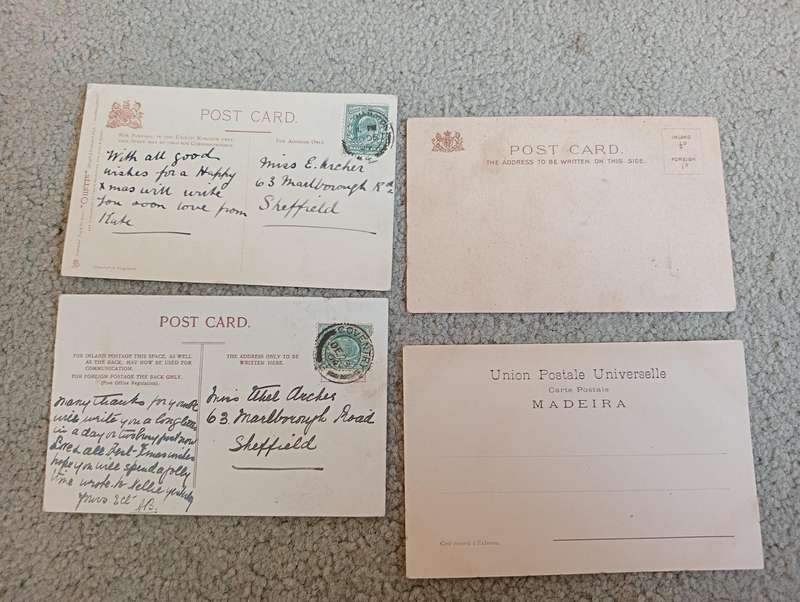 POST CARD.
FOR POSTAGE IN THE UNITED KINGDOM ONLY,
THIS SPACE MAY BE USED FOR CORRESPONDENCE.
FOR ADDRESS ONLY.
With all good
wishes for a Happy
Xmas will write
you soon love from
Kate
Miss E. Archer
63 Marlborough Rd
Sheffield
"ODETTE"
POST CARD.
THE ADDRESS TO BE WRITTEN ON THIS SIDE.
INLAND
½d
FOREIGN
1d
POST CARD.
FOR INLAND POSTAGE THIS SPACE, AS WELL
AS THE BACK, MAY NOW BE USED FOR
COMMUNICATION.
FOR FOREIGN POSTAGE THE BACK ONLY.
(Post Office Regulation).
THE ADDRESS ONLY TO BE
WRITTEN HERE.
COVENTRY
many thanks for
will write you a long letter
in a day or two busy just now
Love & all Best Xmas wishes
hope you will spend a jolly
time wrote to Nellie
Yours
Miss Ethel Archer
63 Marlborough Road
Sheffield
Union Postale Universelle
Carte Postale
MADEIRA